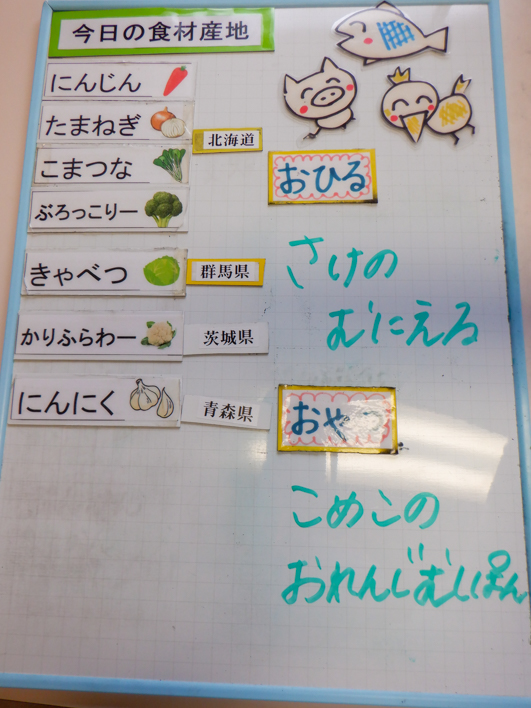 今日の食材産地
にんじん
たまねぎ
北海道
こまつな
ぶろっこりー
きゃべつ
群馬県
かりふらわー
茨城県
にんにく
青森県
おひる
さけの
むにえる
おやつ
こめこの
おれんじむしぱん